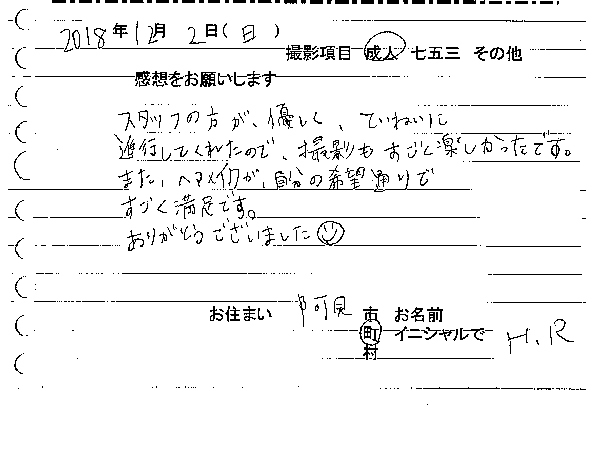 2018年12月2日(日)
撮影項目 成人 七五三 その他
感想をお願いします
スタッフの方が、優しく、ていねいに
進行してくれたので、撮影もすごく楽しかったです。
また、ヘアメイクが、自分の希望通りで
すごく満足です。
ありがとうございました☺
お住まい 阿見 市 お名前
町 イニシャルで H.R
村